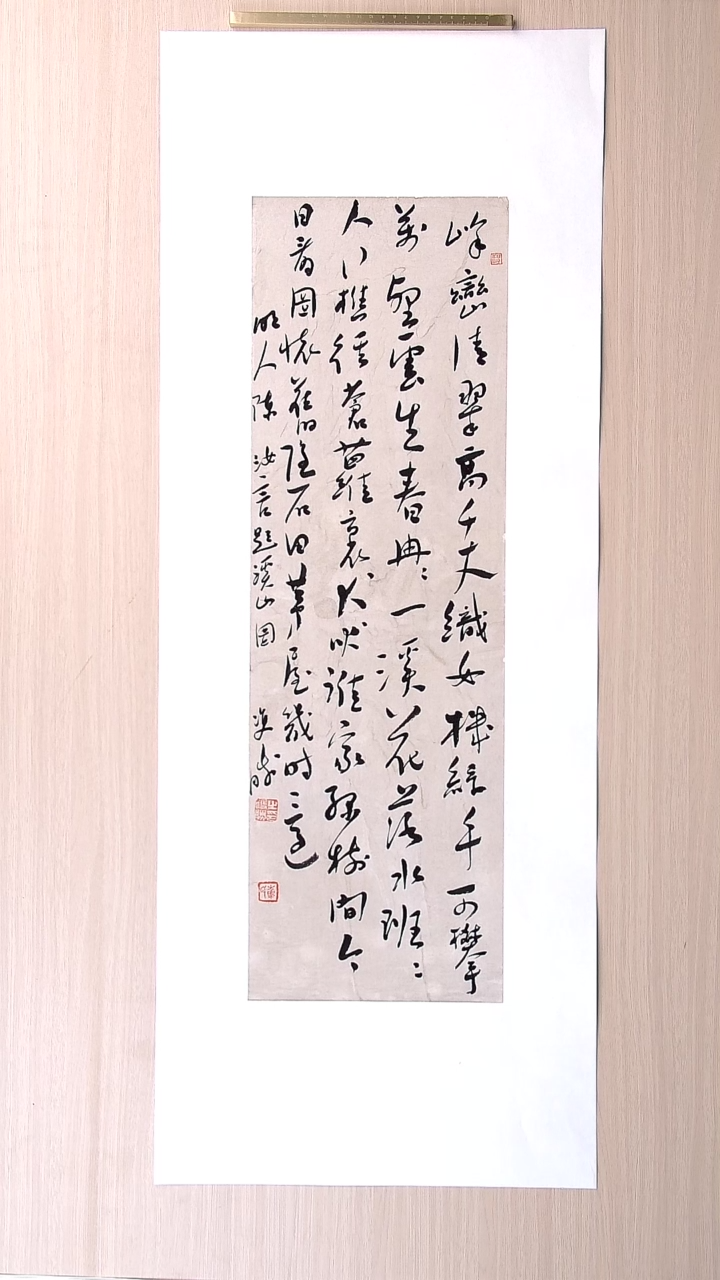 峰巒清翠高千丈織女機絲手可攀
萬壑雲生春冉〻一溪花落水班〻
人行樵徑蒼蘿裏犬吠誰家綠樹間今
日看圖懷舊隱石田茅屋幾時還
明人陳汝言題溪山圖